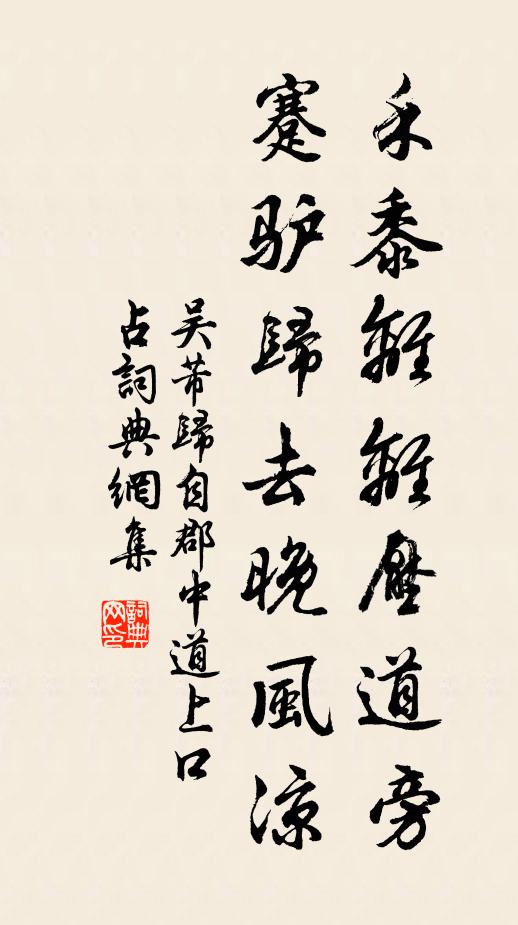 禾黍離離壓道旁
蹇驴歸去晚風涼
吴芾歸自郡中道上口
占詞典網集
詞典
网印